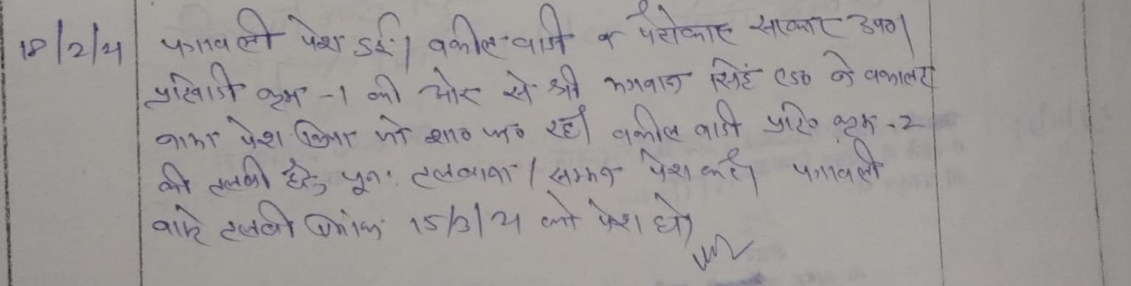 18/2/21 पत्रावली पेश हुई। वकील वादी व पैरोकार सरकार उप०।
प्रतिवादी क्रम -1 की ओर से श्री भगवान सिंह एड० ने वकालत
नामा पेश किया जो शा० प० रहे। वकील वादी प्रति० क्रम -2
की तलबी हेतु पुनः तलवाना / सम्मन पेश करें। पत्रावली
वास्ते तलबी दिनांक 15/3/21 को पेश हो।